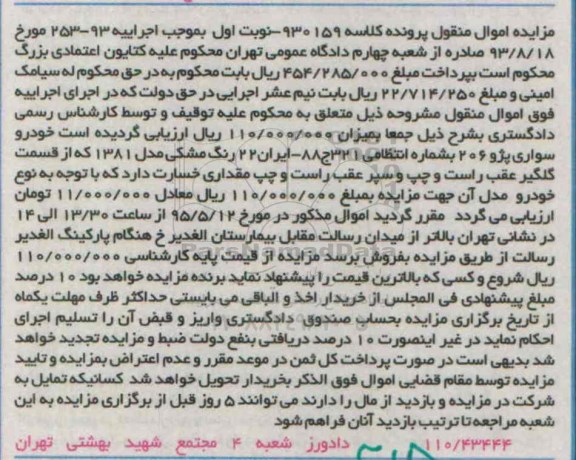 مزایده اموال منقول پرونده کلاسه ۹۳۰۱۵۹-نوبت اول بموجب اجراییه ۹۳-۲۵۳ مورخ
۹۳/۸/۱۸ صادره از شعبه چهارم دادگاه عمومی تهران محکوم علیه کتایون اعتمادی بزرگ
محکوم است بپرداخت مبلغ ۴۵۴/۲۸۵/۰۰۰ ریال بابت محکوم به در حق محکوم له سیامک
امینی و مبلغ ۲۲/۷۱۴/۲۵۰ ریال بابت نیم عشر اجرایی در حق دولت که در اجرای اجراییه
فوق اموال منقول مشروحه ذیل متعلق به محکوم علیه توقیف و توسط کارشناس رسمی
دادگستری بشرح ذیل جمعا بمیزان ۱۱۰/۰۰۰/۰۰۰ ریال ارزیابی گردیده است خودرو
سواری پژو ۲۰۶ بشماره انتظامی ۳۲۱ج۸۸-ایران۲۲ رنگ مشکی مدل ۱۳۸۱ که از قسمت
گلگیر عقب راست و چپ و سپر عقب راست و چپ مقداری خسارت دارد که با توجه به نوع
خودرو مدل آن جهت مزایده بمبلغ ۱۱۰/۰۰۰/۰۰۰ ریال معادل ۱۱/۰۰۰/۰۰۰ تومان
ارزیابی می گردد مقرر گردید اموال مذکور در مورخ ۹۵/۵/۱۲ از ساعت ۱۳/۳۰ الی ۱۴
در نشانی تهران بالاتر از میدان رسالت مقابل بیمارستان الغدیر خ هنگام پارکینگ الغدیر
رسالت از طریق مزایده بفروش برسد مزایده از قیمت پایه کارشناسی ۱۱۰/۰۰۰/۰۰۰
ریال شروع و کسی که بالاترین قیمت را پیشنهاد نماید برنده مزایده خواهد بود ۱۰ درصد
مبلغ پیشنهادی فی المجلس از خریدار اخذ و الباقی می بایستی حداکثر ظرف مهلت یکماه
از تاریخ برگزاری مزایده بحساب صندوق دادگستری واریز و قبض آن را تسلیم اجرای
احکام نماید در غیر اینصورت ۱۰ درصد دریافتی بنفع دولت ضبط و مزایده تجدید خواهد
شد بدیهی است در صورت پرداخت کل ثمن در موعد مقرر و عدم اعتراض بمزایده و تایید
مزایده توسط مقام قضایی اموال فوق الذکر بخریدار تحویل خواهد شد کسانیکه تمایل به
شرکت در مزایده و بازدید از مال را دارند می توانند ۵ روز قبل از برگزاری مزایده به این
شعبه مراجعه تا ترتیب بازدید آنان فراهم شود
۱۱۰/۴۳۴۴۴ دادورز شعبه ۴ مجتمع شهید بهشتی تهران